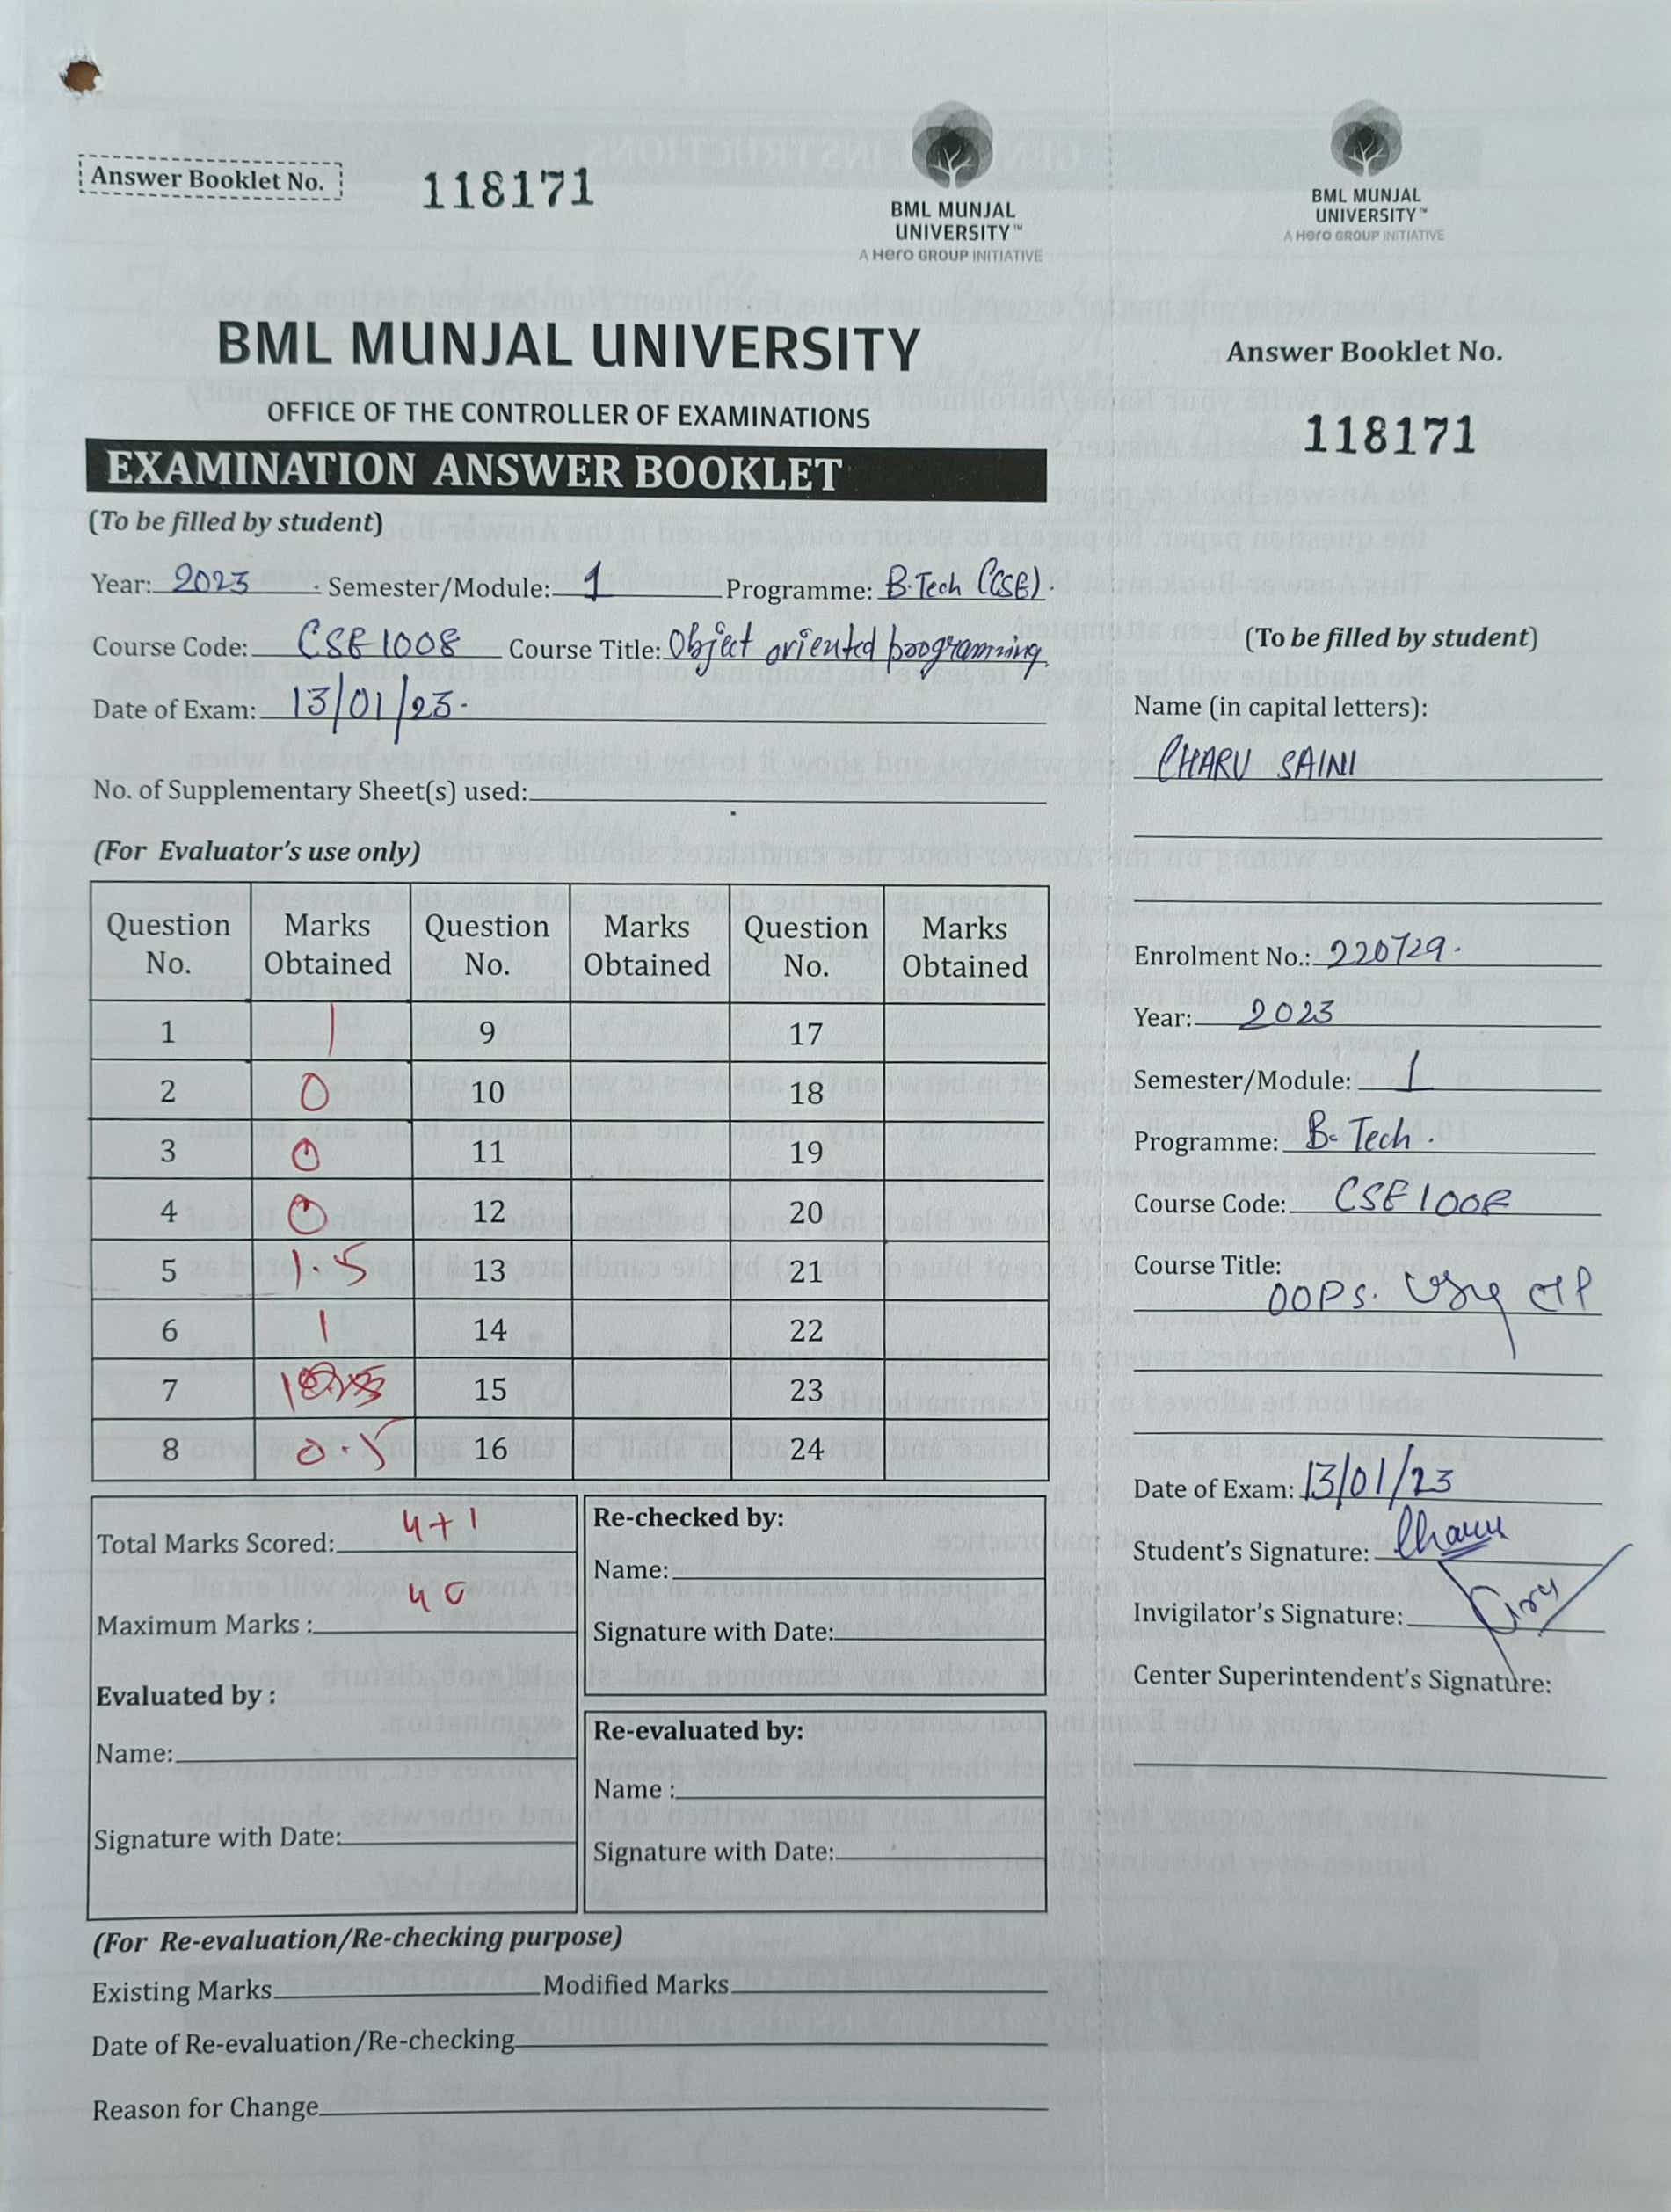 Answer Booklet No. 118171
BML MUNJAL
UNIVERSITY™
A Hero GROUP INITIATIVE
BML MUNJAL
UNIVERSITY™
A Hero GROUP INITIATIVE
BML MUNJAL UNIVERSITY
OFFICE OF THE CONTROLLER OF EXAMINATIONS
EXAMINATION ANSWER BOOKLET
(To be filled by student)
Year: 2023 Semester/Module: 1 Programme: B.Tech (CSE).
Course Code: CSE1008 Course Title: Object oriented programming
Date of Exam: 13/01/23.
No. of Supplementary Sheet(s) used:
(For Evaluator's use only)
Question No. Marks Obtained Question No. Marks Obtained Question No. Marks Obtained
1 1 9 17
2 0 10 18
3 0 11 19
4 0 12 20
5 1.5 13 21
6 1 14 22
7 15 23
8 0.5 16 24
Total Marks Scored: 4+1
Maximum Marks : 40
Evaluated by :
Name:
Signature with Date:
Re-checked by:
Name:
Signature with Date:
Re-evaluated by:
Name :
Signature with Date:
(For Re-evaluation/Re-checking purpose)
Existing Marks Modified Marks
Date of Re-evaluation/Re-checking
Reason for Change
Answer Booklet No.
118171
(To be filled by student)
Name (in capital letters):
CHARU SAINI
Enrolment No.: 220729.
Year: 2023
Semester/Module: 1
Programme: B. Tech.
Course Code: CSE1008
Course Title:
OOPs.
Date of Exam: 13/01/23
Student's Signature: Charu
Invigilator's Signature:
Center Superintendent's Signature: